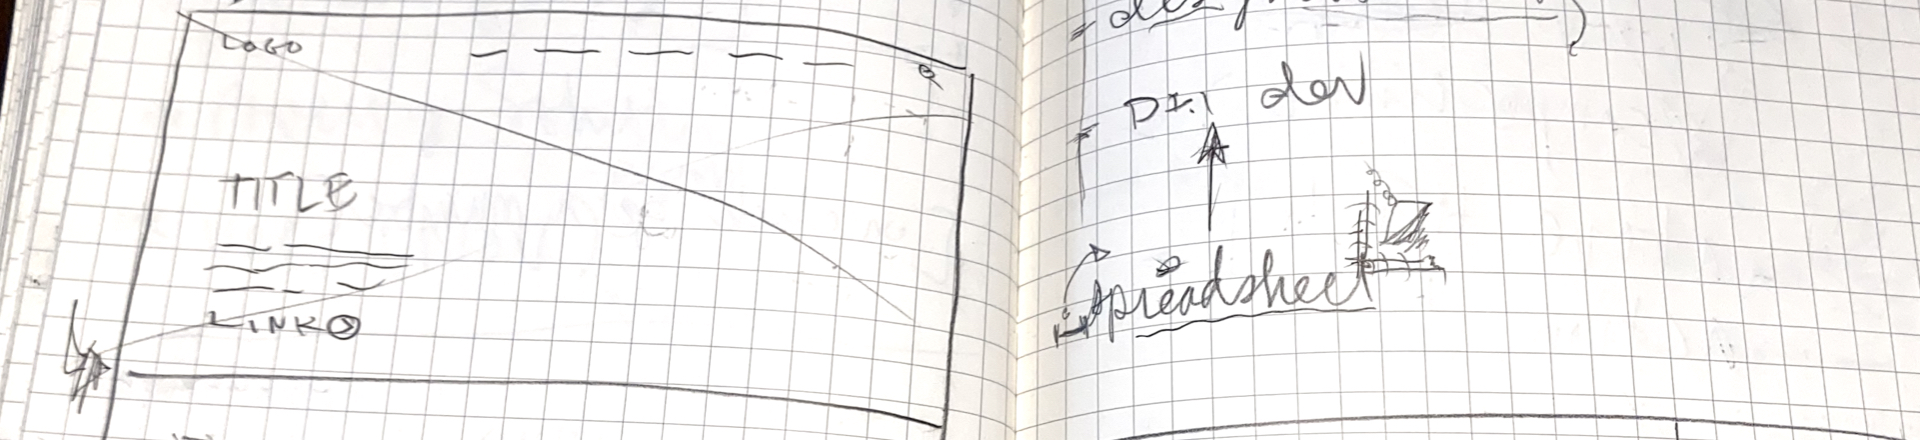 LOGO
TITLE
LINK
dev
spreadsheet